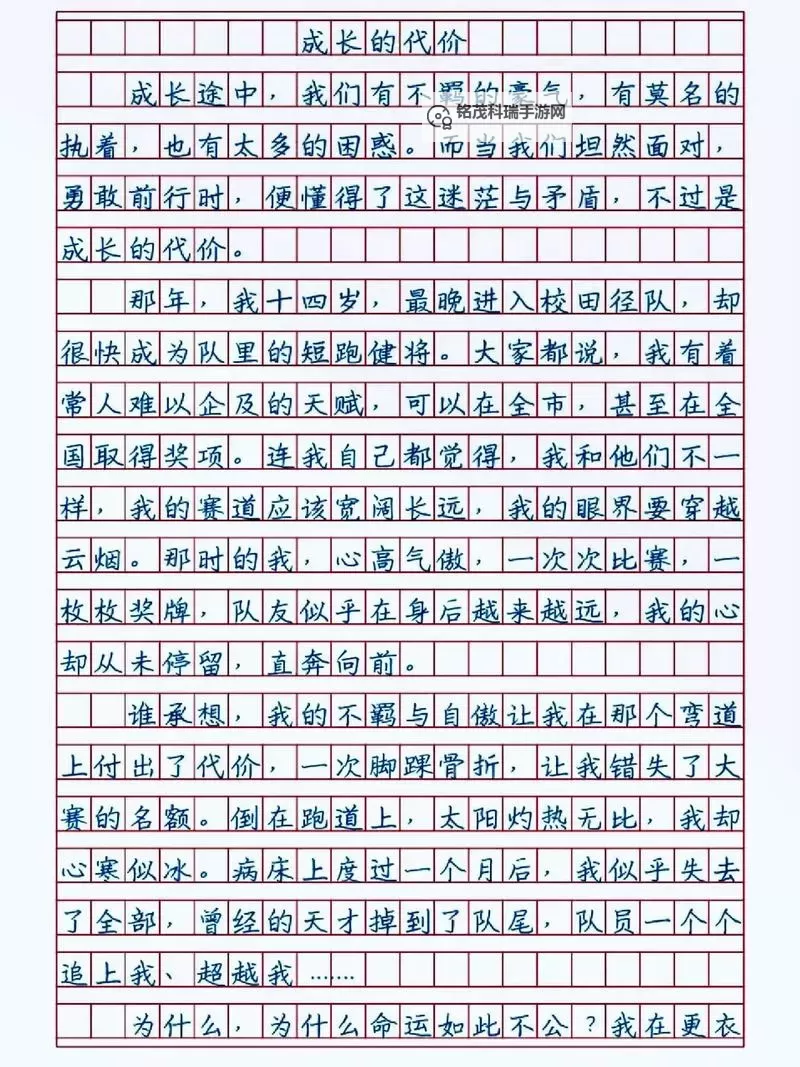 成长的代价
成长途中，我们有不羁的豪气，有莫名的
铭茂科瑞手游网
执着，也有太多的困惑。而当我们坦然面对，
勇敢前行时，便懂得了这迷茫与矛盾，不过是
成长的代价。
那年，我十四岁，最晚进入校田径队，却
很快成为队里的短跑健将。大家都说，我有着
常人难以企及的天赋，可以在全市，甚至在全
国取得奖项。连我自己都觉得，我和他们不一
样，我的赛道应该宽阔长远，我的眼界要穿越
云烟。那时的我，心高气傲，一次次比赛，一
枚枚奖牌，队友似乎在身后越来越远，我的心
却从未停留，直奔向前。
谁承想，我的不羁与自傲让我在那个弯道
上付出了代价，一次脚踝骨折，让我错失了大
赛的名额。倒在跑道上，太阳灼热无比，我却
心寒似冰。病床上度过一个月后，我似乎失去
了全部，曾经的天才掉到了队尾，队员一个个
追上我、超越我……
为什么，为什么命运如此不公？我在更衣